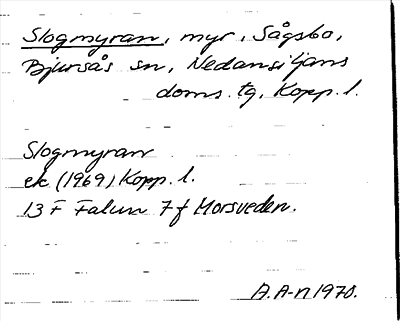 Slogmyran, myr, Sågsbo,
Bjursås sn, Nedansiljans
doms. tg, Kopp. l.
Slogmyran
ek (1969) Kopp. l.
13 F Falun 7 f Morsveden.
A. A-n 1970.